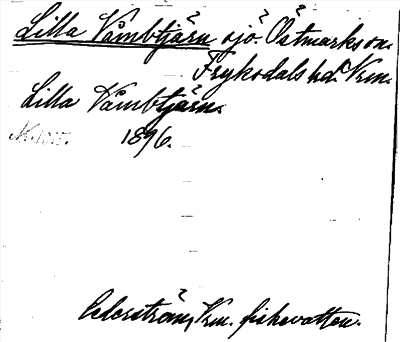 Lilla Våmbtjärn sjö. Östmarks sn.
Frykdals hd. Vrm.
Lilla Våmbtjärn.
1896.
Cederström, Vrm. fiskevatten.